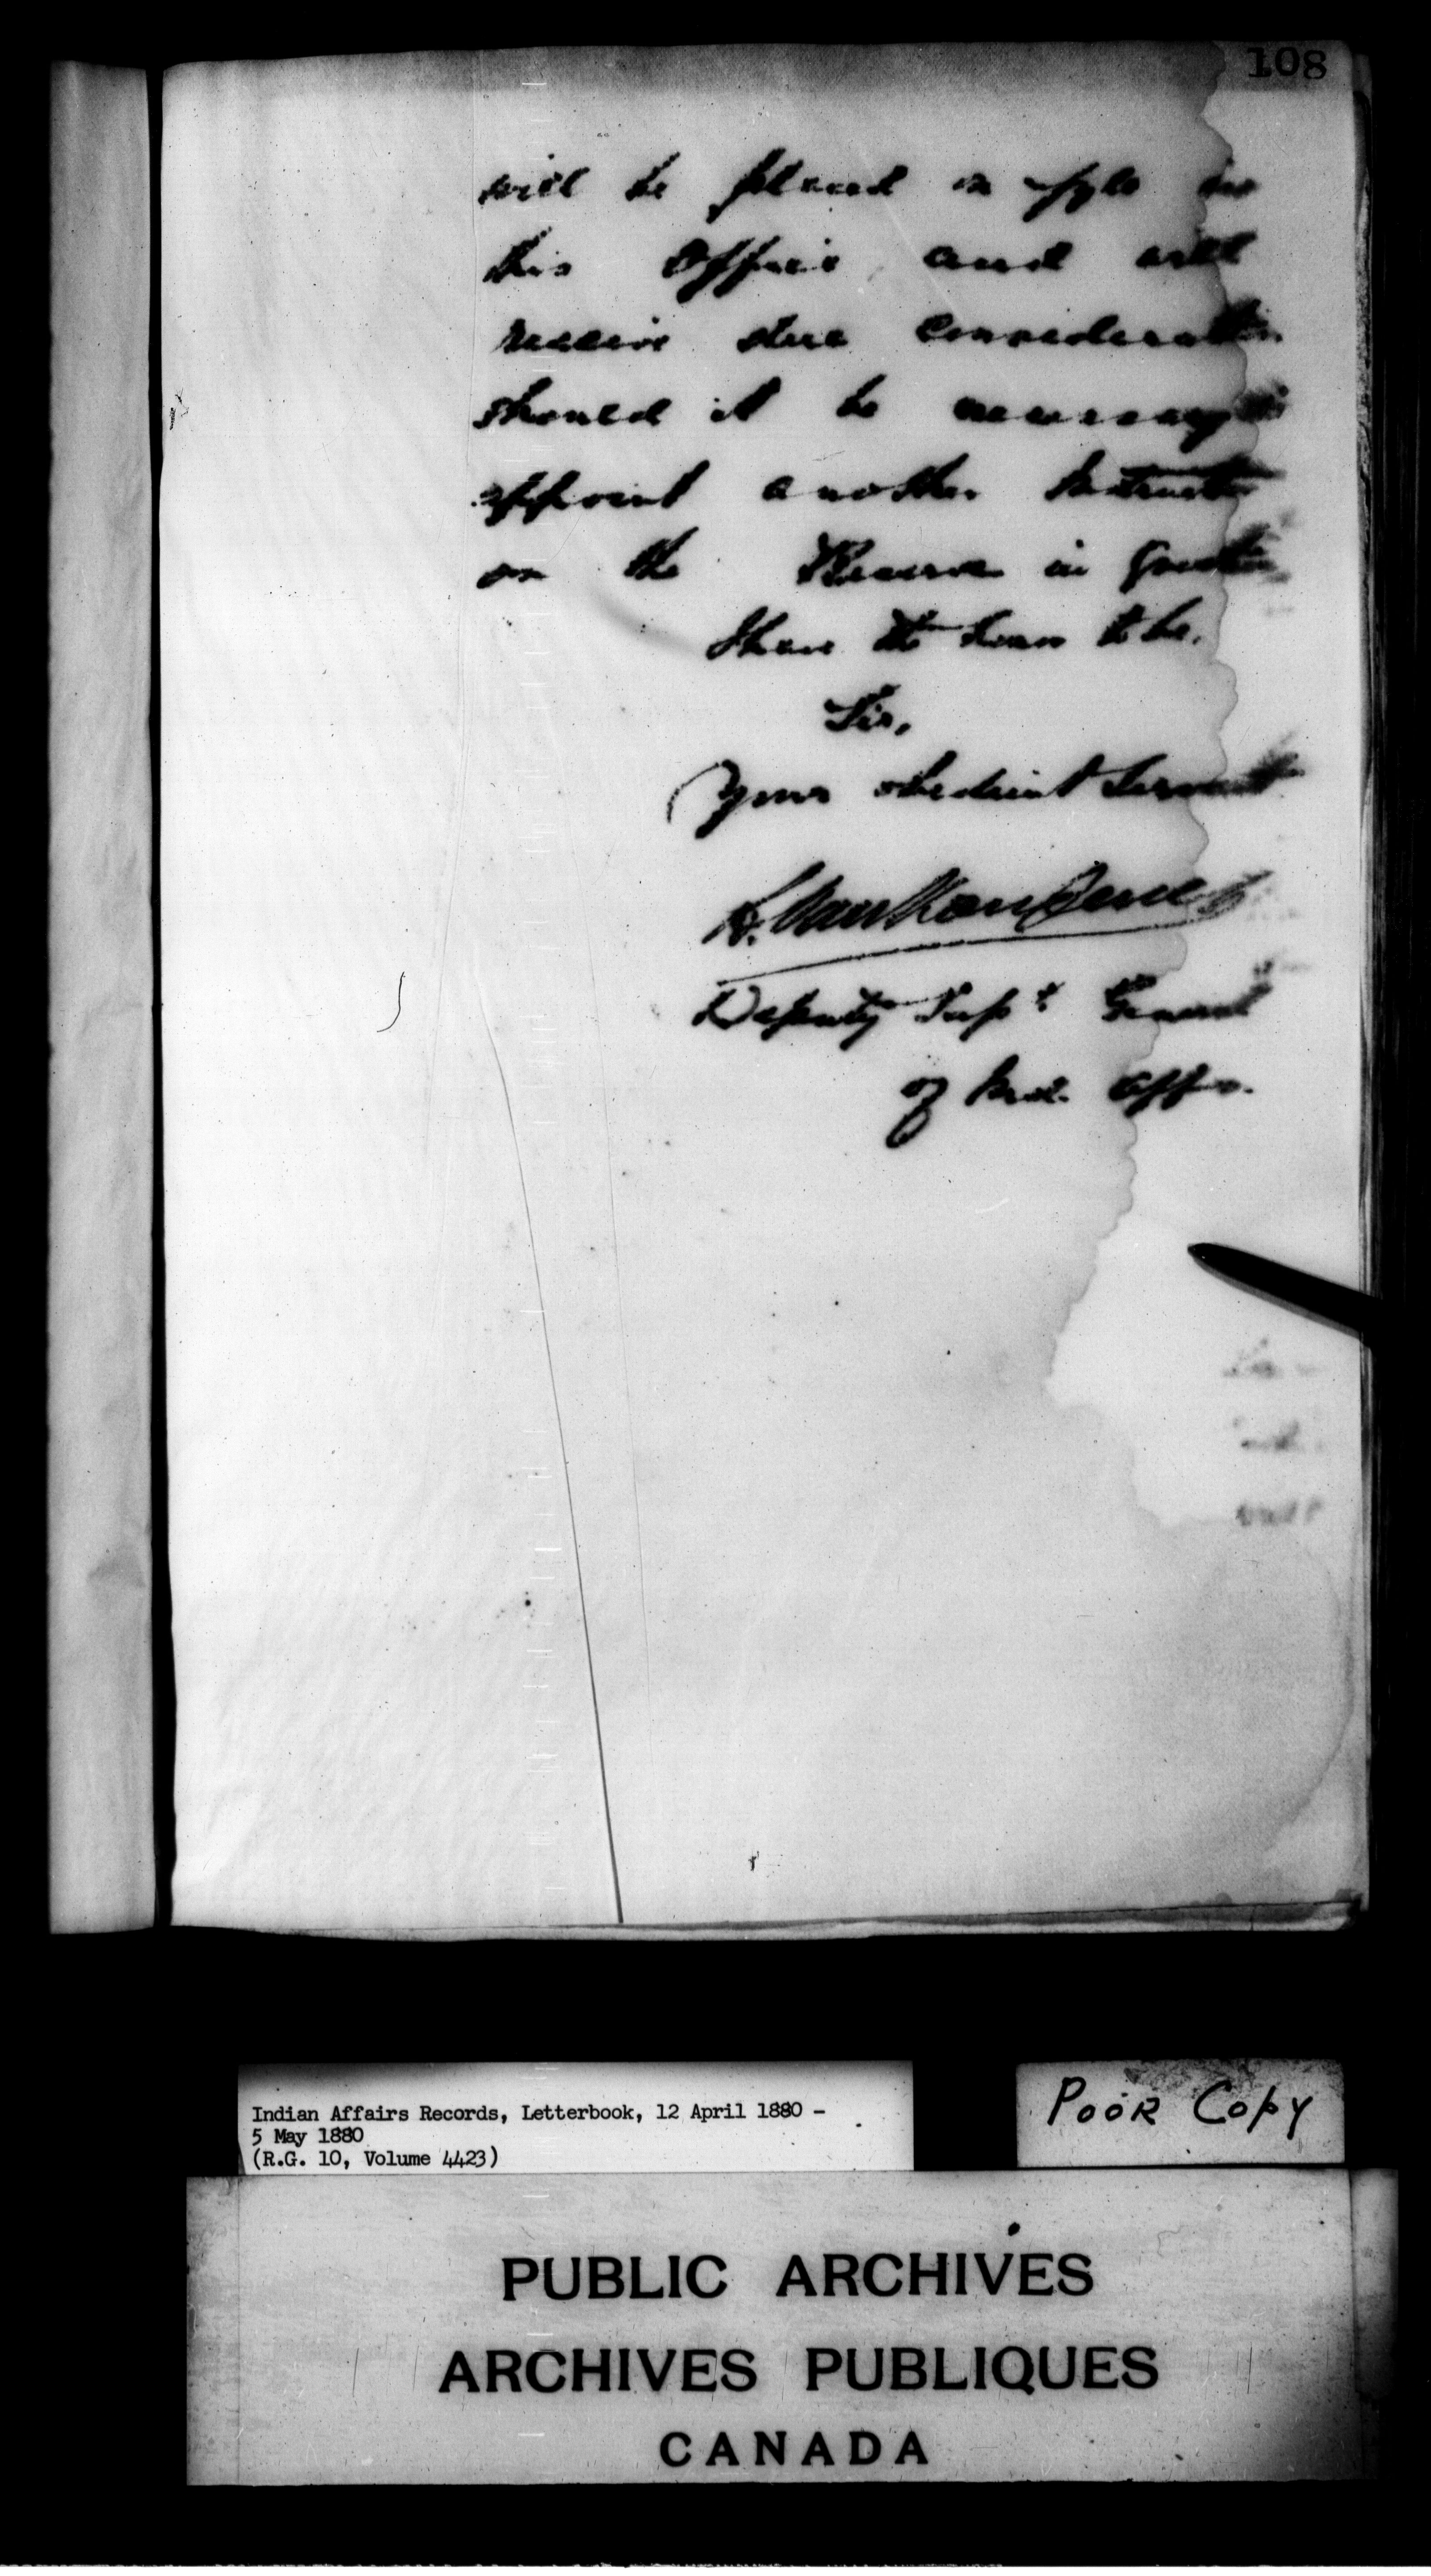 108
will be placed on fyle in
this Office and will
receive due consideration
should it be necessary to
appoint another Instructor
on the Reserve in question
I have the honor to be,
Sir,
Your obedient Servant
L. Vankoughnet
Deputy Supt General
of Ind. Affrs.
Indian Affairs Records, Letterbook, 12 April 1880 –
5 May 1880
(R.G. 10, Volume 4423)
POOR COPY
PUBLIC ARCHIVES
ARCHIVES PUBLIQUES
CANADA